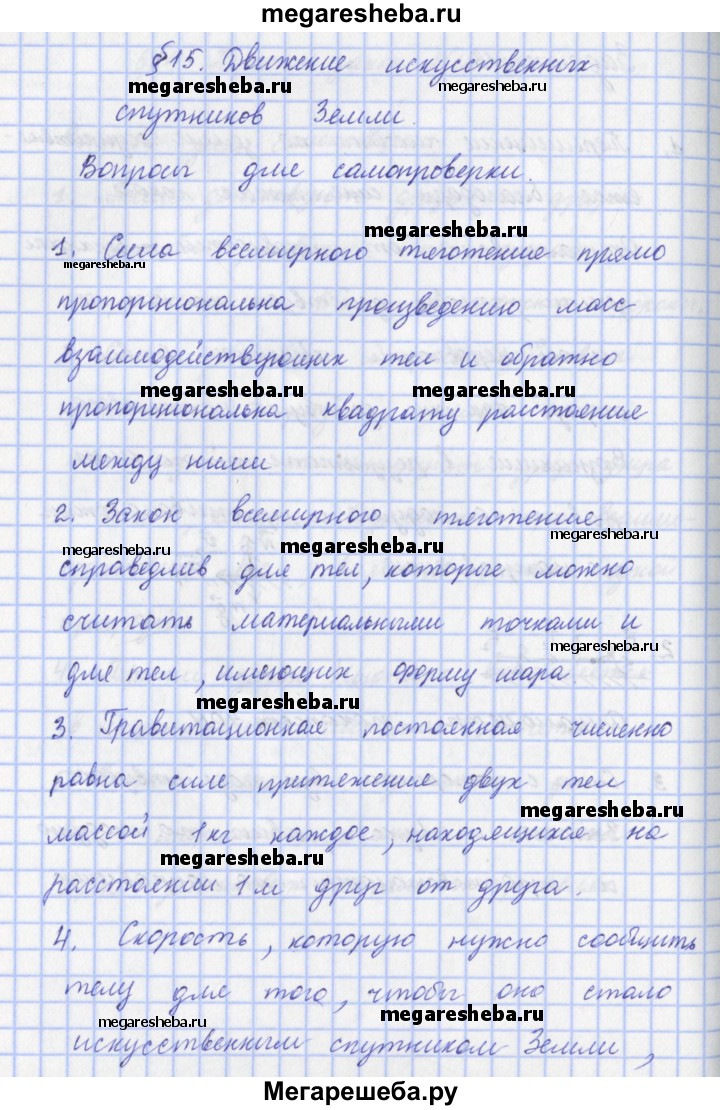 megaresheba.ru
§15. Движение искусственных
megaresheba.ru megaresheba.ru
спутников Земли.
Вопросы для самопроверки.
megaresheba.ru
1. Сила всемирного тяготения прямо
megaresheba.ru
пропорциональна произведению масс
взаимодействующих тел и обратно
megaresheba.ru megaresheba.ru
пропорциональна квадрату расстояния
между ними
2. Закон всемирного тяготения
megaresheba.ru megaresheba.ru megaresheba.ru
справедлив для тел, которые можно
считать материальными точками и
megaresheba.ru
для тел, имеющих форму шара.
megaresheba.ru
3. Гравитационная постоянная численно
равна силе притяжения двух тел
megaresheba.ru
массой 1 кг каждое, находящихся на
megaresheba.ru
расстоянии 1 м друг от друга.
4. Скорость, которую нужно сообщить
телу для того, чтобы оно стало
megaresheba.ru megaresheba.ru
искусственным спутником Земли,
Мегарешеба.ру